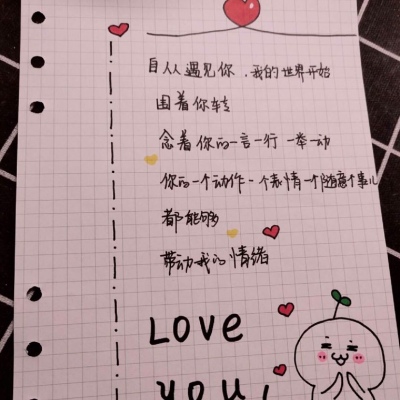 自从遇见你，我的世界开始
围着你转
念着你的一言一行 一举一动
你的一个动作一个表情一个随意个事儿
都能够
带动我的情绪
LOVE
YOU!